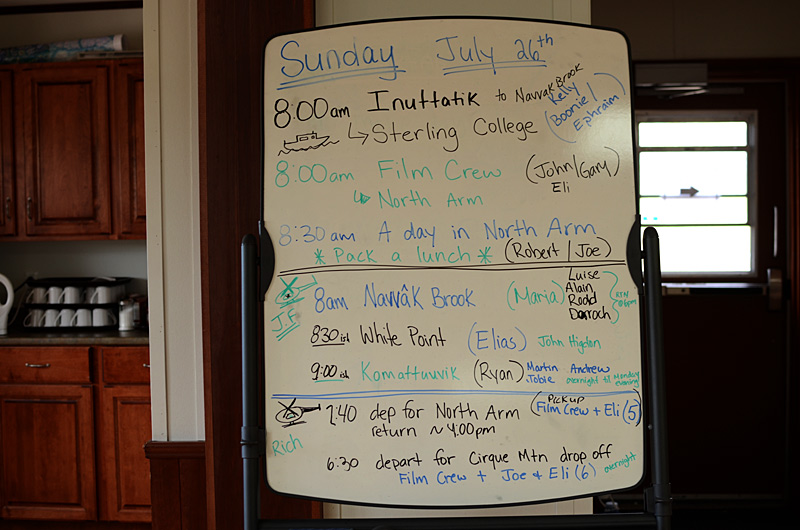 Sunday July 26th
8:00am Inuttatik to Navvâk Brook
↳ Sterling College (Kelly Boonie/ Ephraim)
8:00am Film Crew (John/Gary) Eli
↳ North Arm
8:30am A day in North Arm
* Pack a lunch * (Robert/Joe)
8am Navvâk Brook (Maria) Luise Alain Rodd Darroch
J.F
830ish White Point (Elias) John Higdon
9:00ish Komattuuvik (Ryan) Martin Andrew
Jobie overnight til Monday evening
2:40 dep for North Arm (Pick up Film Crew + Eli (5))
return ~ 4:00pm
Rich
6:30 depart for Cirque Mtn drop off
Film Crew + Joe + Eli (6) overnight